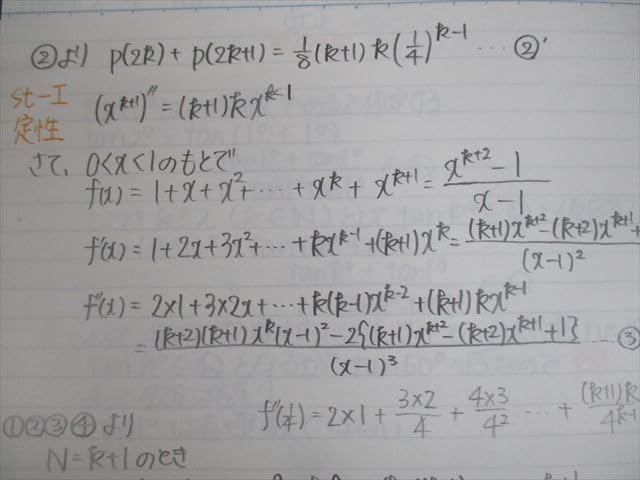 ②より P(2k) + P(2k+1) = 1/8 (k+1) k (1/4)^{k-1} … ②'
st-I
定性
(x^{k+1})'' = (k+1)k x^{k-1}
さて、0<x<1のもとで
f(x) = 1+x+x^2+…+x^k + x^{k+1} = (x^{k+2} - 1)/(x-1)
f'(x) = 1+2x+3x^2+…+kx^{k-1}+(k+1)x^k = ((k+1)x^{k+2} - (k+2)x^{k+1} +)/(x-1)^2
f''(x) = 2×1+3×2x+…+k(k-1)x^{k-2}+(k+1)kx^{k-1}
= ((k+2)(k+1)x^k(x-1)^2 - 2{(k+1)x^{k+2} - (k+2)x^{k+1} + 1})/(x-1)^3 … ③
f''(1/4) = 2×1 + 3×2/4 + 4×3/4^2 … + (k+1)k/4^{k-1}
①②③④より
N=k+1のとき